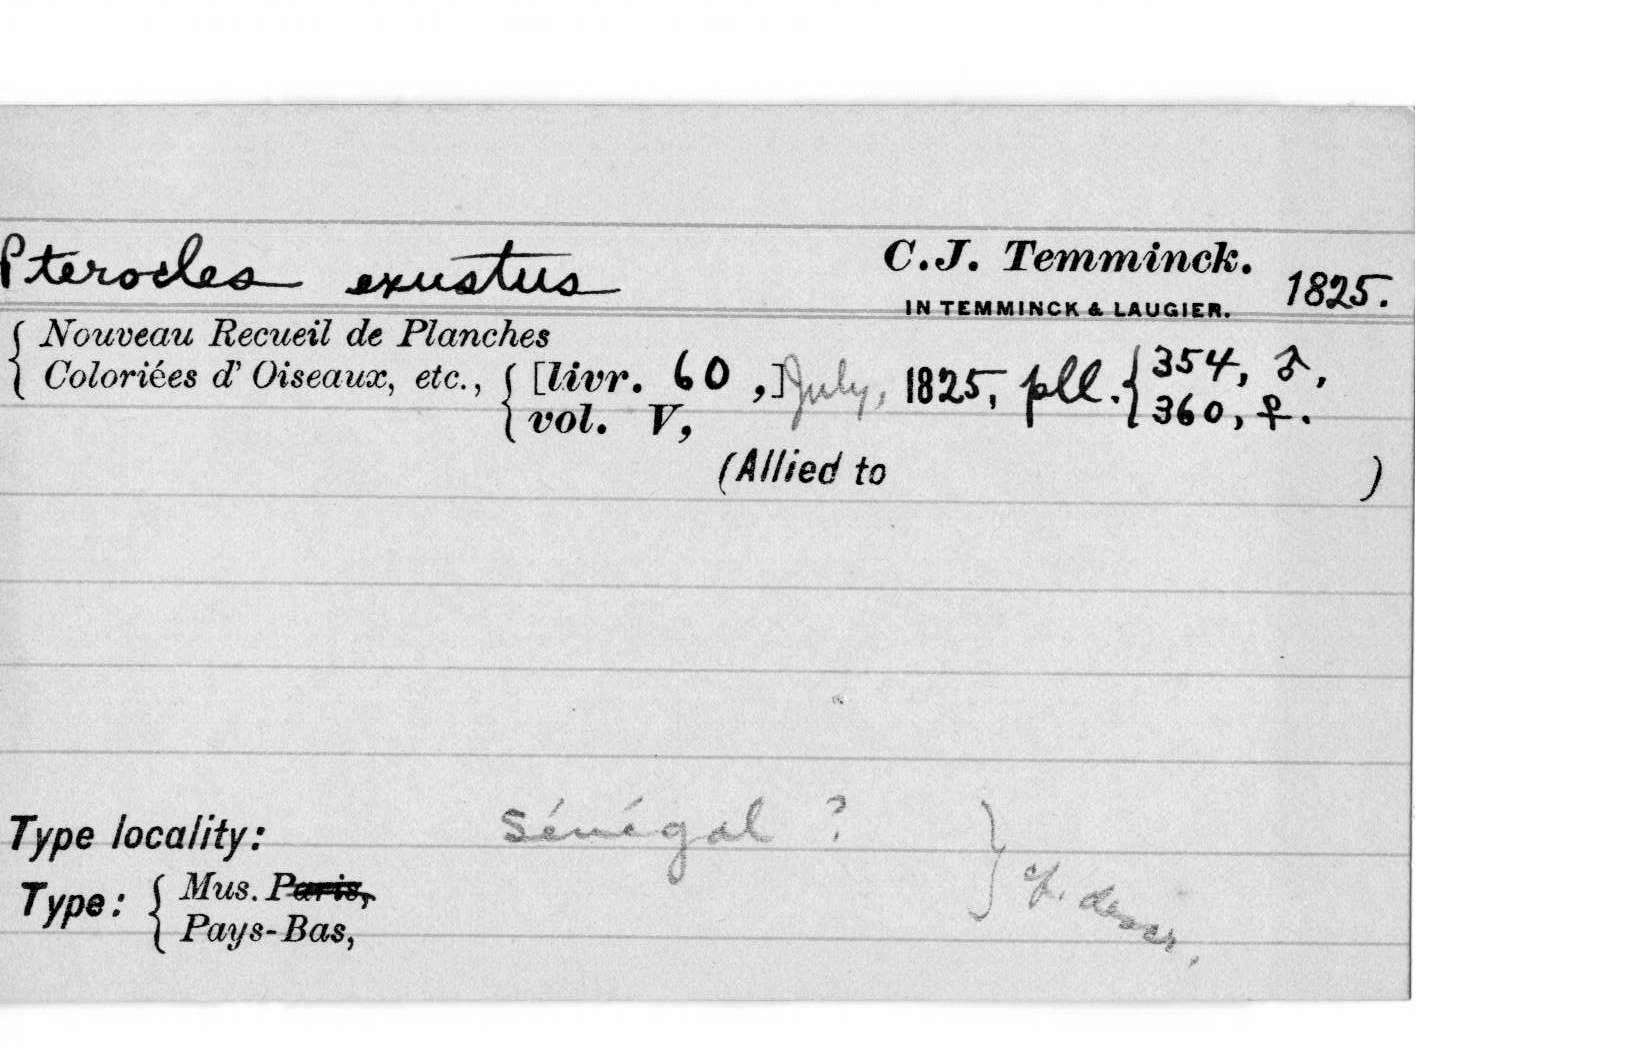 Pterocles exustus C.J. Temminck. 1825.
IN TEMMINCK & LAUGIER.
Nouveau Recueil de Planches
Coloriées d' Oiseaux, etc., [livr. 60 ,] July, 1825, pll. 354, ♂,
vol. V, 360, ♀.
(Allied to )
Type locality: Sénégal ?
Type: Mus. Paris,
Pays-Bas,
descr.